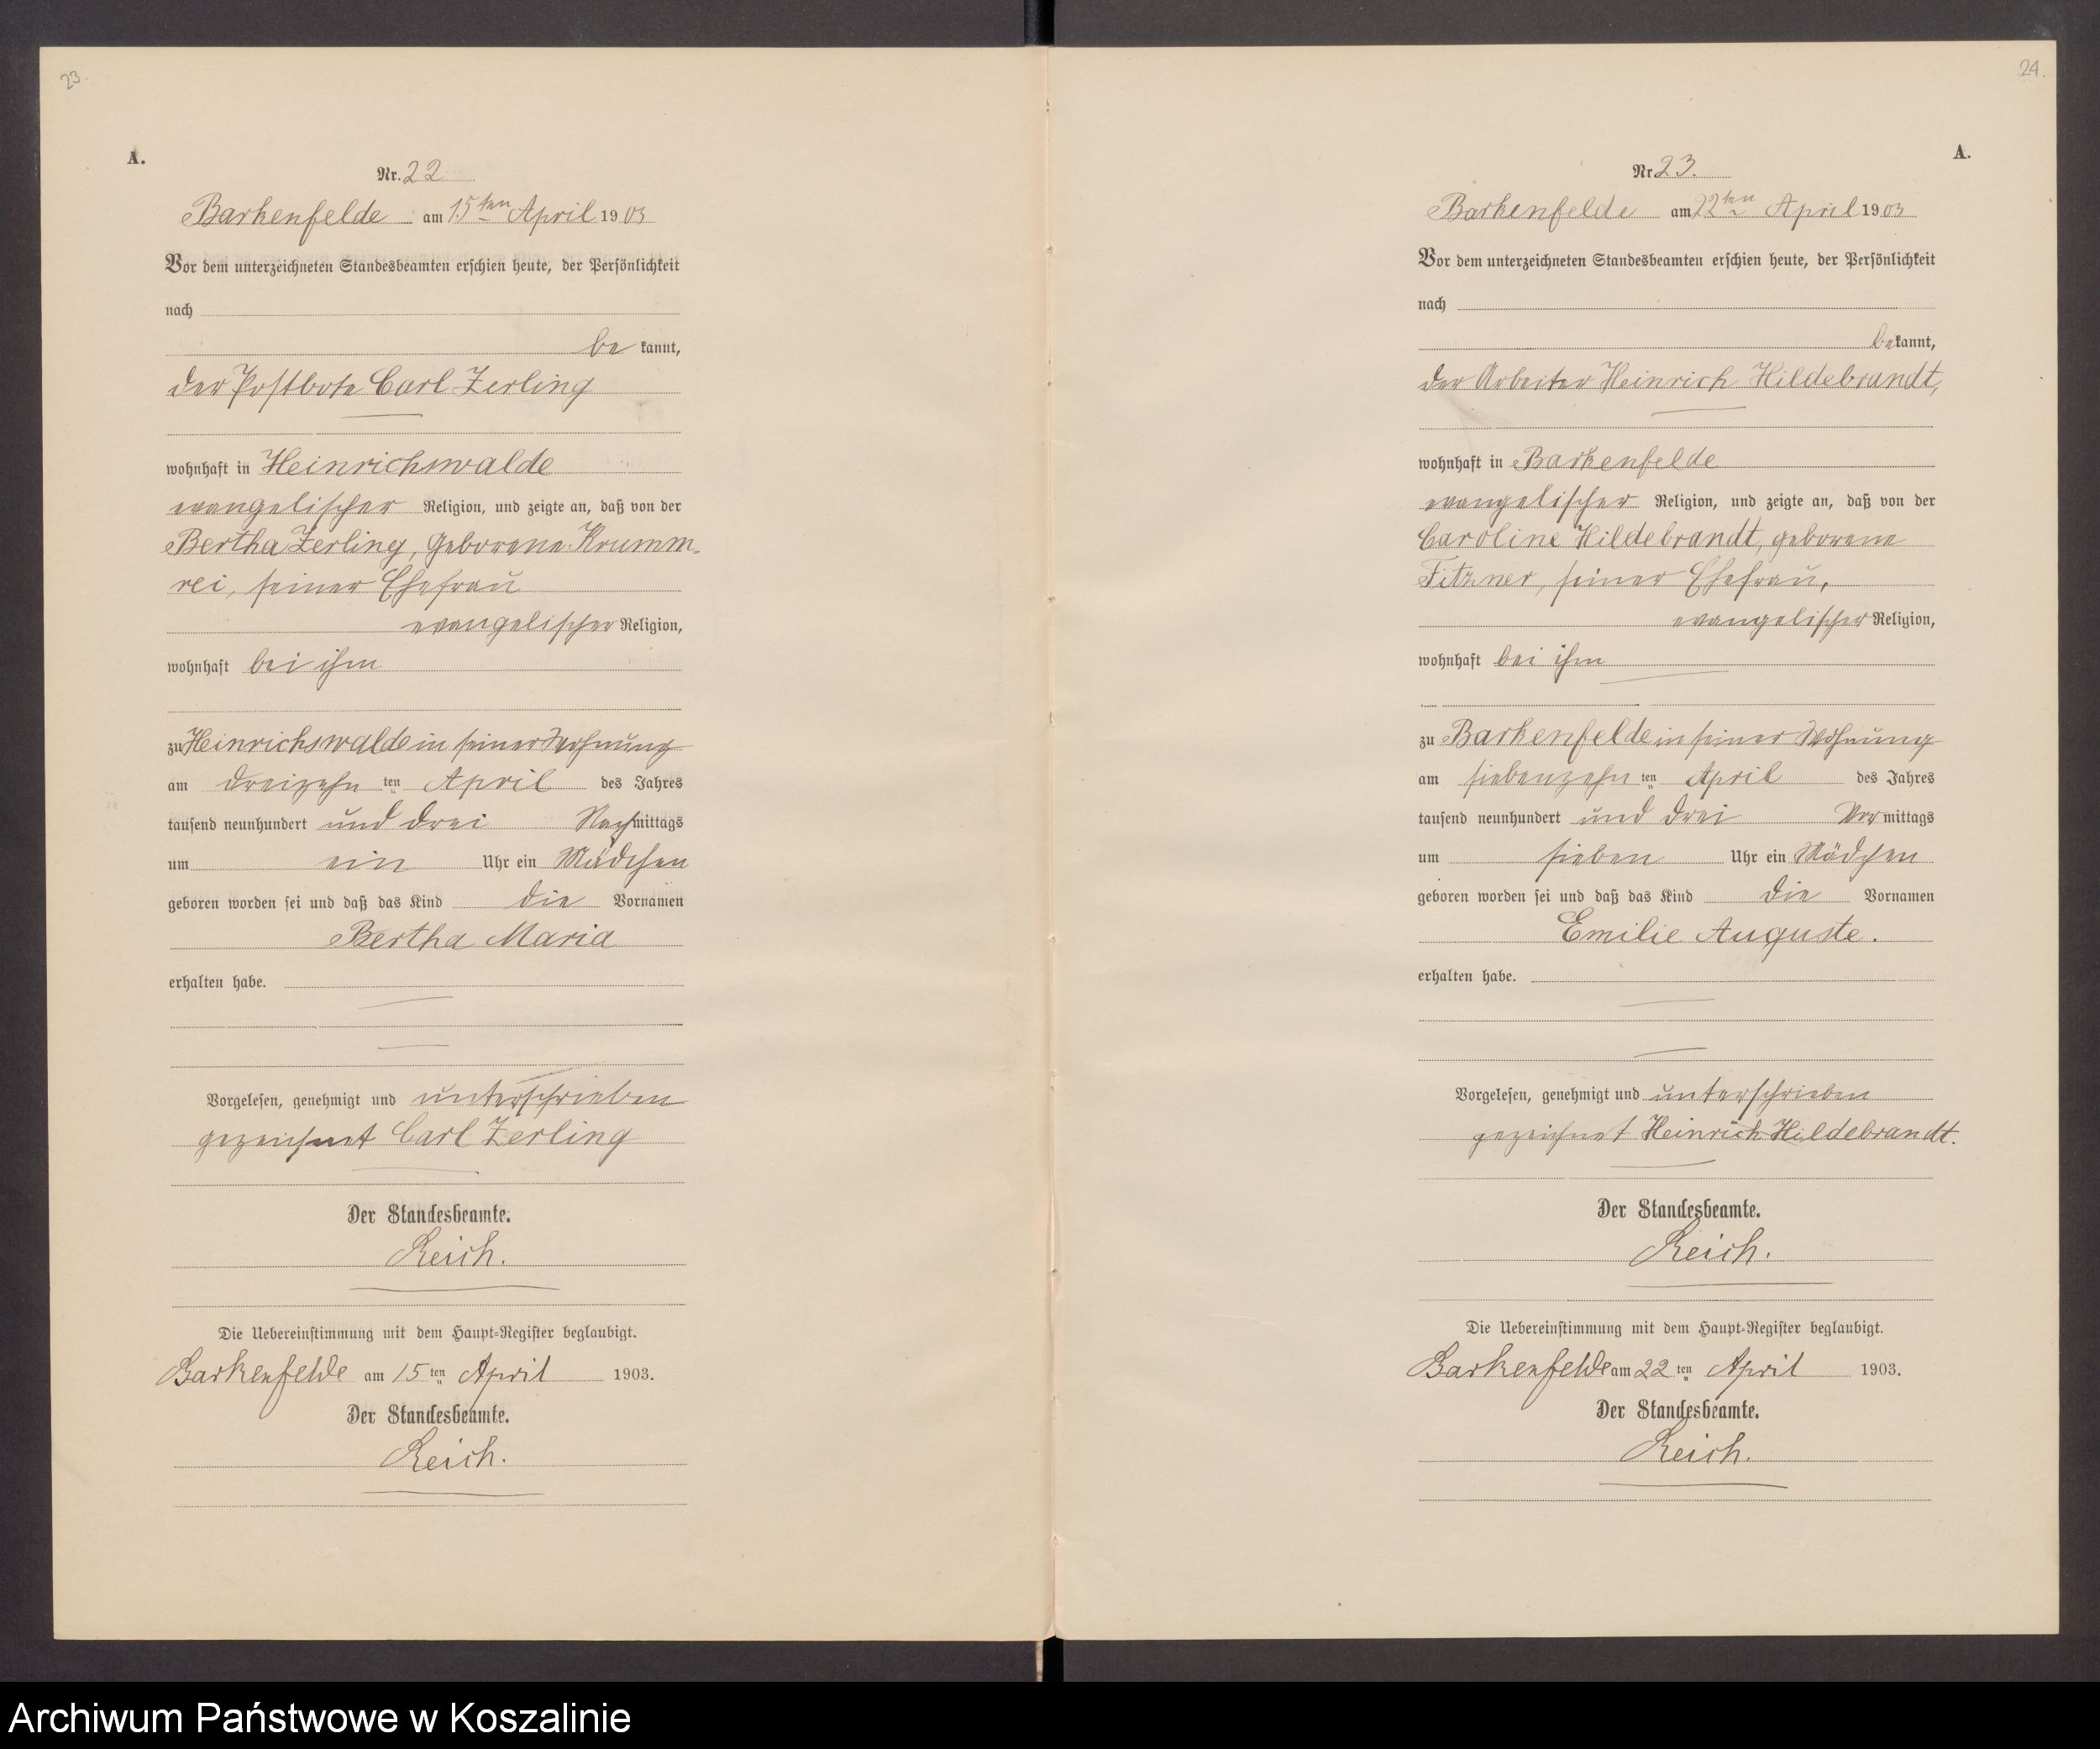 23.
A.
Nr. 22
Barkenfelde am 15ten April 1903
Vor dem unterzeichneten Standesbeamten erschien heute, der Persönlichkeit
nach
be kannt,
der Postbote Carl Zerling
wohnhaft in Heinrichswalde
evangelischer Religion, und zeigte an, daß von der
Bertha Zerling, geborene Krumm-
rei, seiner Ehefrau
evangelischer Religion,
wohnhaft bei ihm
zu Heinrichswalde in seiner Wohnung
am dreizehn ten April des Jahres
tausend neunhundert und drei Nachmittags
um ein Uhr ein Mädchen
geboren worden sei und daß das Kind die Vornamen
Bertha Maria
erhalten habe.
Vorgelesen, genehmigt und unterschrieben
gezeichnet Carl Zerling
Der Standesbeamte.
Reich.
Die Uebereinstimmung mit dem Haupt-Register beglaubigt.
Barkenfelde am 15 ten April 1903.
Der Standesbeamte.
Reich.
24.
A.
Nr. 23.
Barkenfelde am 22ten April 1903
Vor dem unterzeichneten Standesbeamten erschien heute, der Persönlichkeit
nach
bekannt,
der Arbeiter Heinrich Hildebrandt,
wohnhaft in Barkenfelde
evangelischer Religion, und zeigte an, daß von der
Caroline Hildebrandt, geborene
Fitzner, seiner Ehefrau,
evangelischer Religion,
wohnhaft bei ihm
zu Barkenfelde in seiner Wohnung
am siebenzehn ten April des Jahres
tausend neunhundert und drei Vormittags
um sieben Uhr ein Mädchen
geboren worden sei und daß das Kind die Vornamen
Emilie Auguste.
erhalten habe.
Vorgelesen, genehmigt und unterschrieben
gezeichnet Heinrich Hildebrandt.
Der Standesbeamte.
Reich.
Die Uebereinstimmung mit dem Haupt-Register beglaubigt.
Barkenfelde am 22 ten April 1903.
Der Standesbeamte.
Reich.
Archiwum Państwowe w Koszalinie